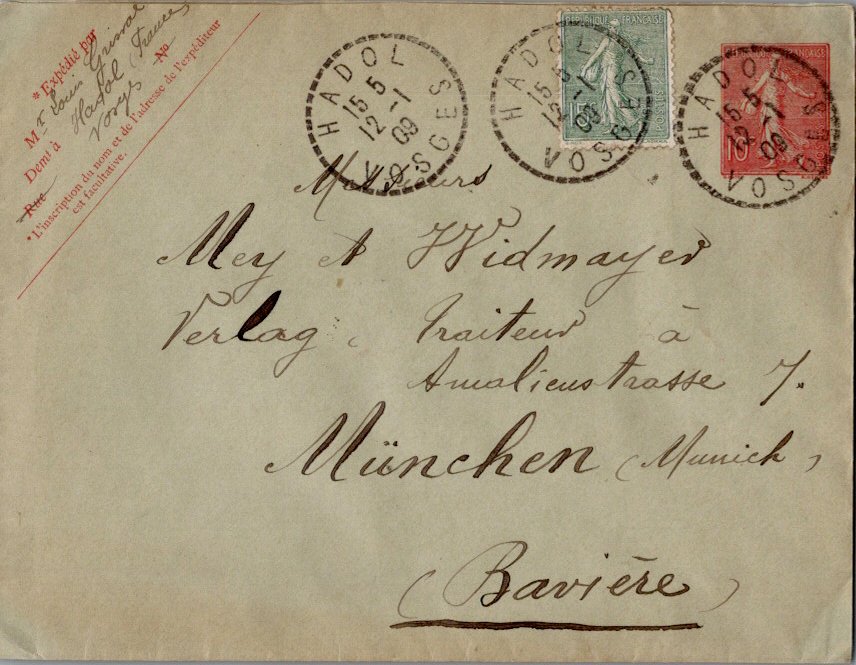 * Expédié par
Mr Louis Grisval
Demt à Hadol (France)
Vosges
Rue No
* L'inscription du nom et de l'adresse de l'expéditeur
est facultative.
HADOL
15 5
12 -1
09
VOSGES
HADOL
15 5
12 -1
09
VOSGES
RÉPUBLIQUE FRANÇAISE
15
HADOL
15 5
12 -1
09
VOSGES
FRANÇAISE
10
Messieurs
Mey et Widmayer
Verlag, Traiteur à
Amalienstrasse 7.
München (Munich)
(Bavière)